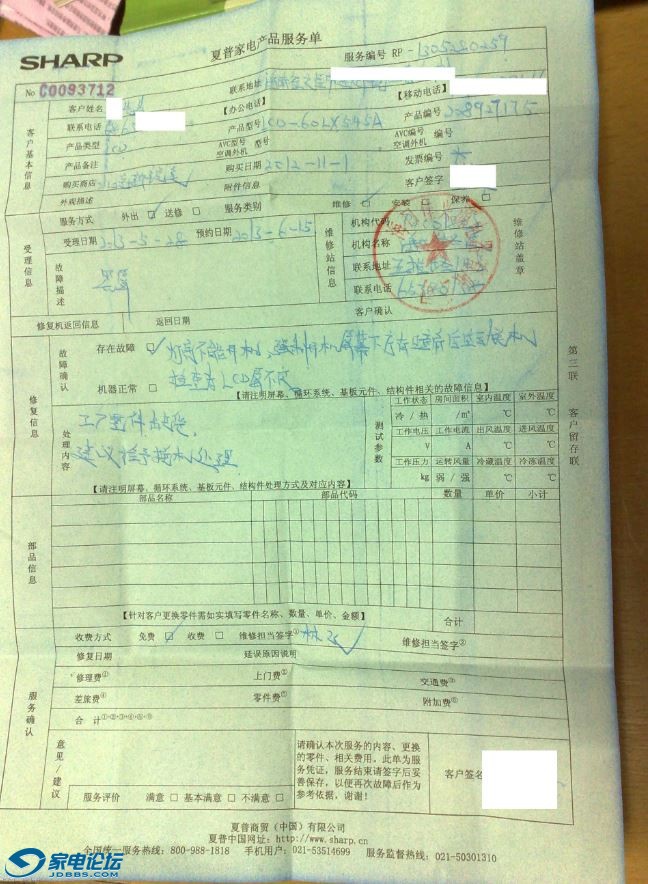 SHARP 夏普家电产品服务单
服务编号 RP-1305280259
No C0093712
客户基本信息
客户姓名
联系地址
联系电话
【办公电话】
【移动电话】
产品类型 LCD
产品型号 LCD-60LX545A
产品编号
AVC型号 空调外机 型号
AVC编号 空调外机 编号
产品备注
购买日期 2012-11-1
发票编号
购买商店
附件信息
客户签字
外观描述
受理信息
服务方式 外出 ☑ 送修 □ 服务类别 维修 ☑ 安装 □ 保养 □
受理日期 2013-5-28 预约日期 2013-6-15
故障描述 黑屏
维修站信息
机构代码
机构名称
联系地址
联系电话
维修站盖章
修复机返回信息 返回日期 客户确认
修复信息
故障确认
存在故障 ☑ 灯亮不能开机,强制开机屏幕下方
检查为LCD屏不良
机器正常 □ 【请注明屏幕、循环系统、基板元件、结构件相关的故障信息】
处理内容
工厂暂停出货,
建议给予换机处理
【请注明屏幕、循环系统、基板元件、结构件处理方式及对应内容】
测试参数
工作状态 房间面积 室内温度 室外温度
冷 / 热 /m² ℃ ℃
工作电压 工作电流 出风温度 进风温度
V A ℃ ℃
工作压力 运转风量 冷藏温度 冷冻温度
kg 弱 / 强 ℃ ℃
第三联 客户留存联
部品信息
部品名称 部品代码 数量 单价 小计
【针对客户更换零件需如实填写零件名称、数量、单价、金额】 合计
服务确认
收费方式 免费 ☑ 收费 □ 维修担当签字① 维修担当签字②
修复日期 延误原因说明
修理费① 上门费② 交通费③
差旅费④ 零件费⑤ 附加费⑥
合 计①+②+③+④+⑤+⑥
意见/建议
请确认本次服务的内容、更换的零件、相关费用,此单为服务凭证,服务结束请签字后妥善保存,以便再次故障后作为参考依据,谢谢!
客户签名
服务评价 满意 □ 基本满意 □ 不满意 □
夏普商贸(中国)有限公司
夏普中国网址:http://www.sharp.cn
全国统一服务热线:800-988-1818 手机用户:021-53514699 服务监督热线:021-50301310
家电论坛
JDBBS.COM